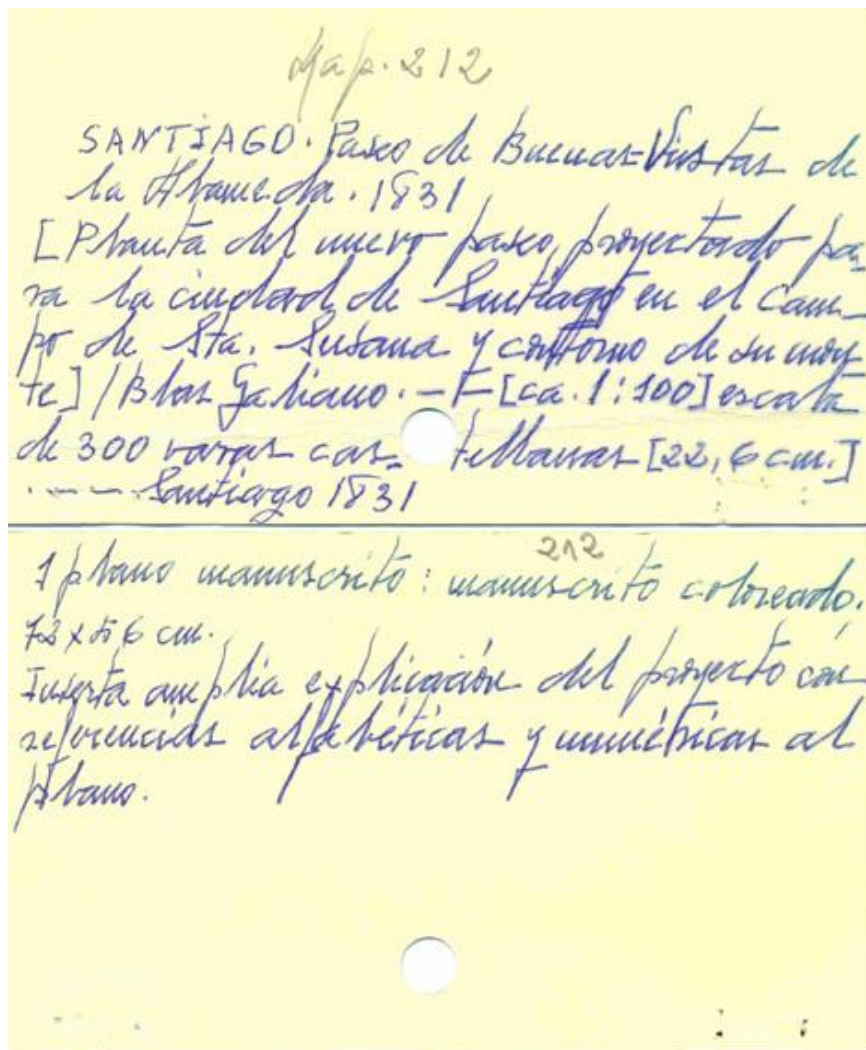 Map. 212
SANTIAGO. Paseo de Buenas=Vistas de
la Alameda. 1831
[Planta del nuevo paseo, proyectado pa-
ra la ciudad de Santiago en el cam-
po de Sta. Susana y contorno de su mon-
te] / Blas Galiano. - [ca. 1:100] escala
de 300 varas cas- tellanas [22,6 cm.]
. - - - Santiago 1831
212
1 plano manuscrito : manuscrito coloreado.
72 x 56 cm.
Inserta amplia explicación del proyecto con
referencias alfabéticas y numéricas al
plano.